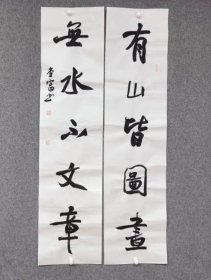 有山皆圖畫
無水不文章
李富書